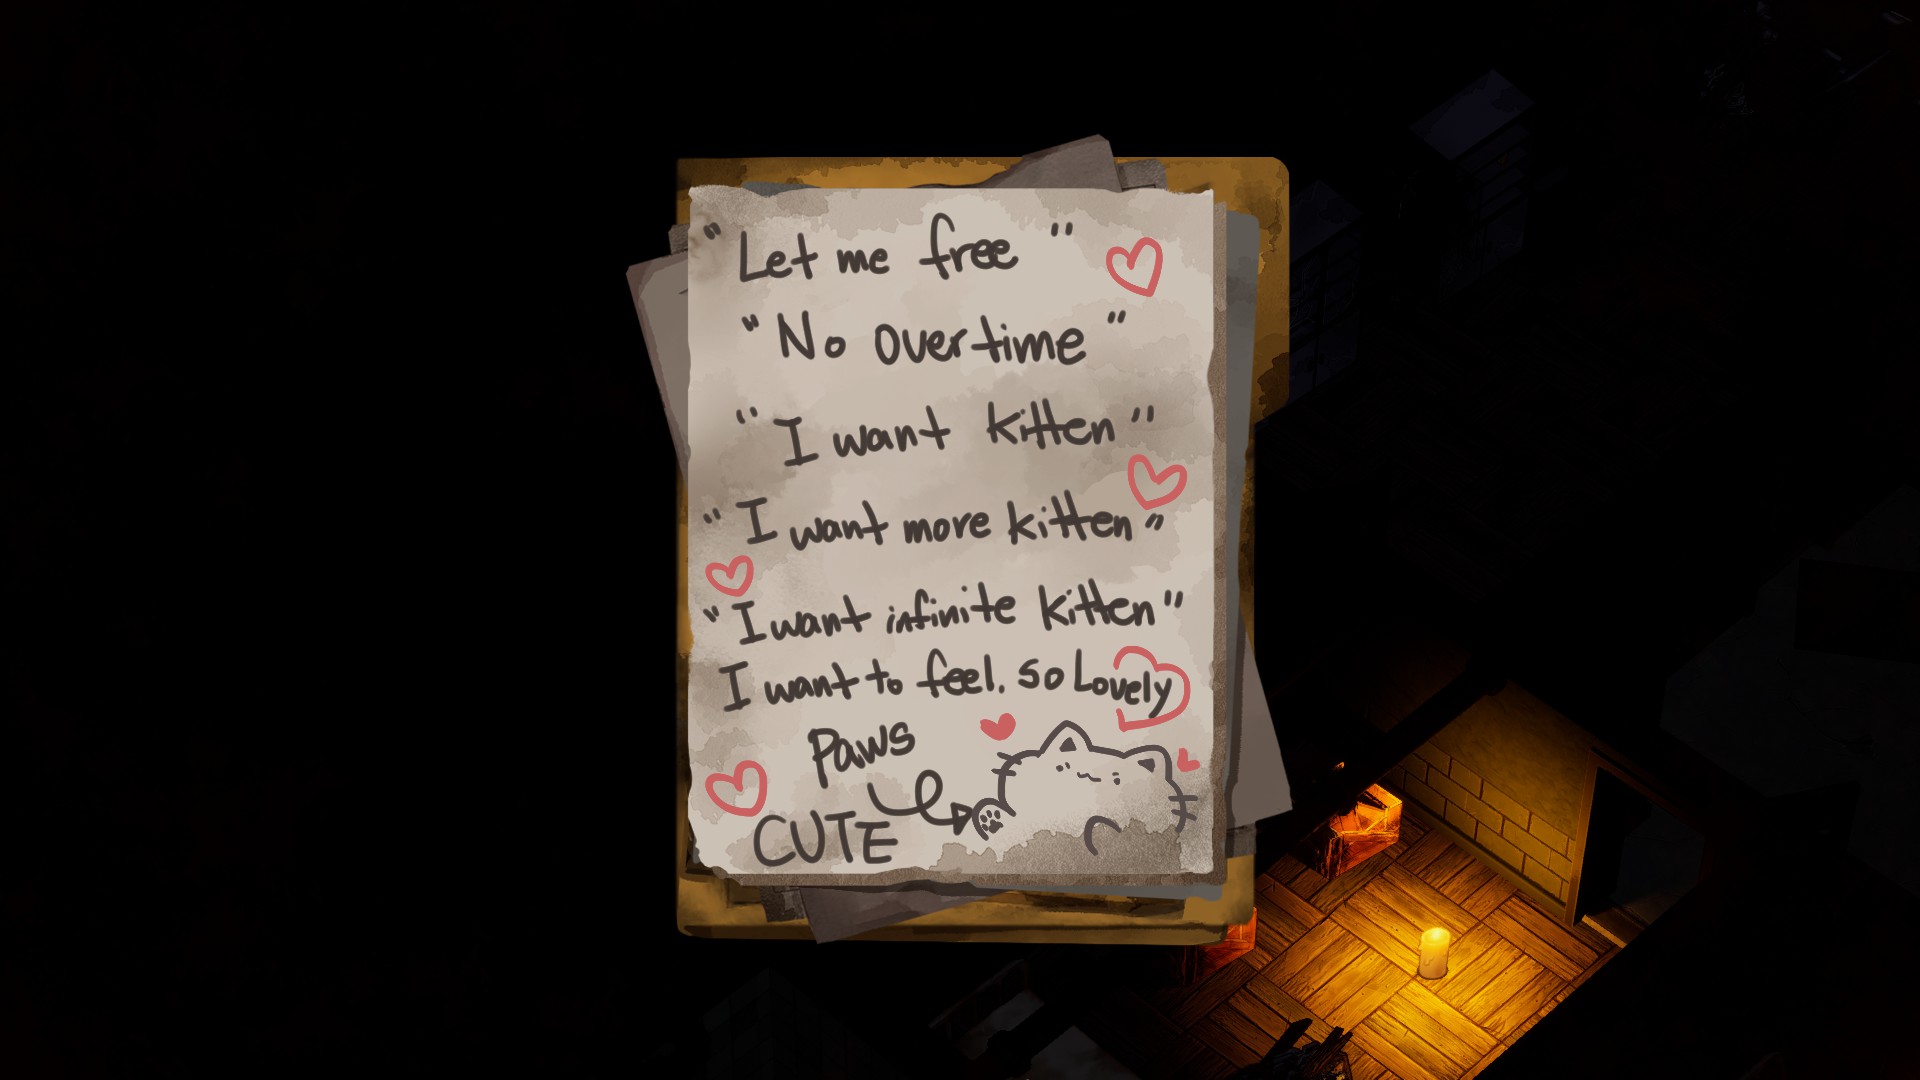 "Let me free"
"No overtime"
"I want kitten"
"I want more kitten"
"I want infinite kitten"
I want to feel. so Lovely
Paws
CUTE